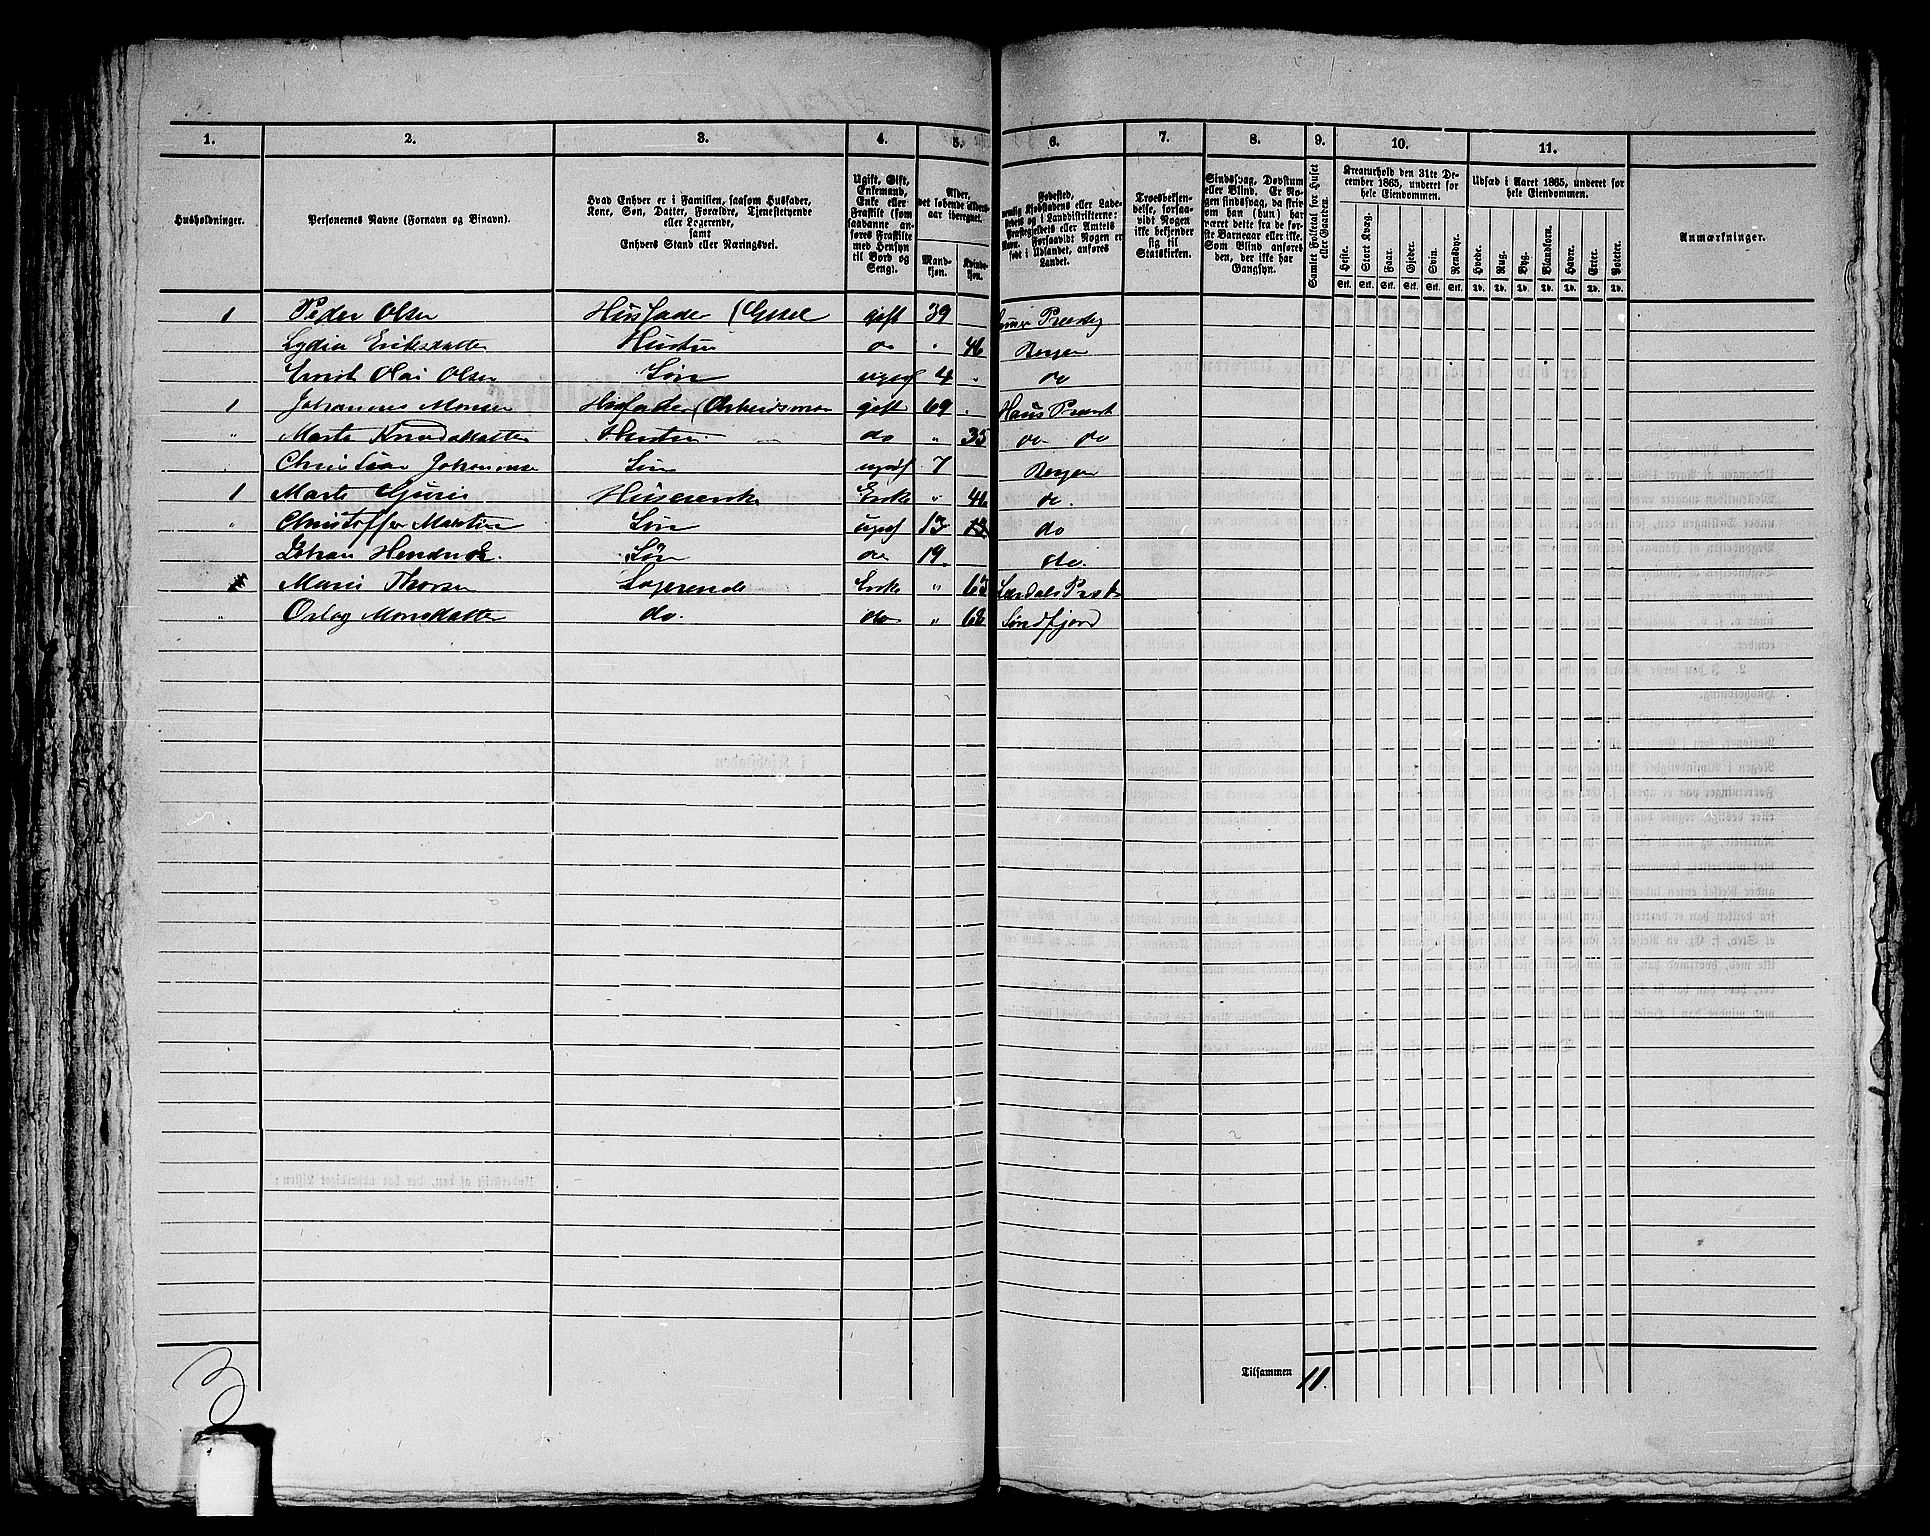 1. 2. 3. 4. 5. 6. 7. 8. 9. 10. 11.
Husholdninger.
Personernes Navne (Fornavn og Binavn).
Hvad Enhver er i Familien, saasom Husfader,
Kone, Søn, Datter, Forældre, Tjenestetyende
eller Logerende,
samt
Enhvers Stand eller Næringsvei.
Ugift, Gift,
Enkemand,
Enke eller
Fraskilt (som
saadanne an-
føres Fraskilte
med Hensyn
til Bord og
Seng).
Alder,
det løbende Alders-
aar iberegnet.
Mand-
kjøn.
Kvinde-
kjøn.
Fødested,
nemlig Kjøbstadens eller Lade-
stedets og i Landdistrikterne:
Præstegjeldets eller Amtets
Navn. Forsaavidt Nogen er
født i Udlandet, anføres
Landet.
Troesbekjen-
delse, forsaa-
vidt Nogen
ikke bekjender
sig til
Statskirken.
Sindssvag, Døvstum
eller Blind. Er No-
gen sindssvag, da skriv
om han (hun) har
været dette fra de før-
ste Barneaar eller ikke.
Som Blind anføres
den, der ikke har
Gangsyn.
Samlet Folketal for Huset
eller Gaarden.
Kreaturhold den 31te De-
cember 1865, underet for
hele Eiendommen.
Heste. Stort Kvæg. Faar. Gjeder. Svin. Rensdyr.
Stk. Stk. Stk. Stk. Stk. Stk.
Udsæd i Aaret 1865, underet for
hele Eiendommen.
Hvede. Rug. Byg. Blandkorn. Havre. Erter. Poteter.
Td. Td. Td. Td. Td. Td. Td.
Anmærkninger.
1 Peder Olsen Husfader (Gesel gift 39 Præstg
Lydia Eriksdatter Hustru do " 46 Bergen
Olai Olsen Søn ugift 4 " do
1 Johannes Monsen Husfader (Arbeidsman gift 69 " Haus Præst
" Marta Knudsdatter Hustru do " 35 do do
Christian Johannesen Søn ugift 7 Bergen
1 Marte Husererske Enke " 46 do
" Christoffer Martin Søn ugift 13 13 do
Johan Hendrick Søn do 19 do
Marie Thorsen Logerende Enke " 63 Lærdals Præst
" Monsdatter do. do " Søndfjord
Tilsammen 11.
3